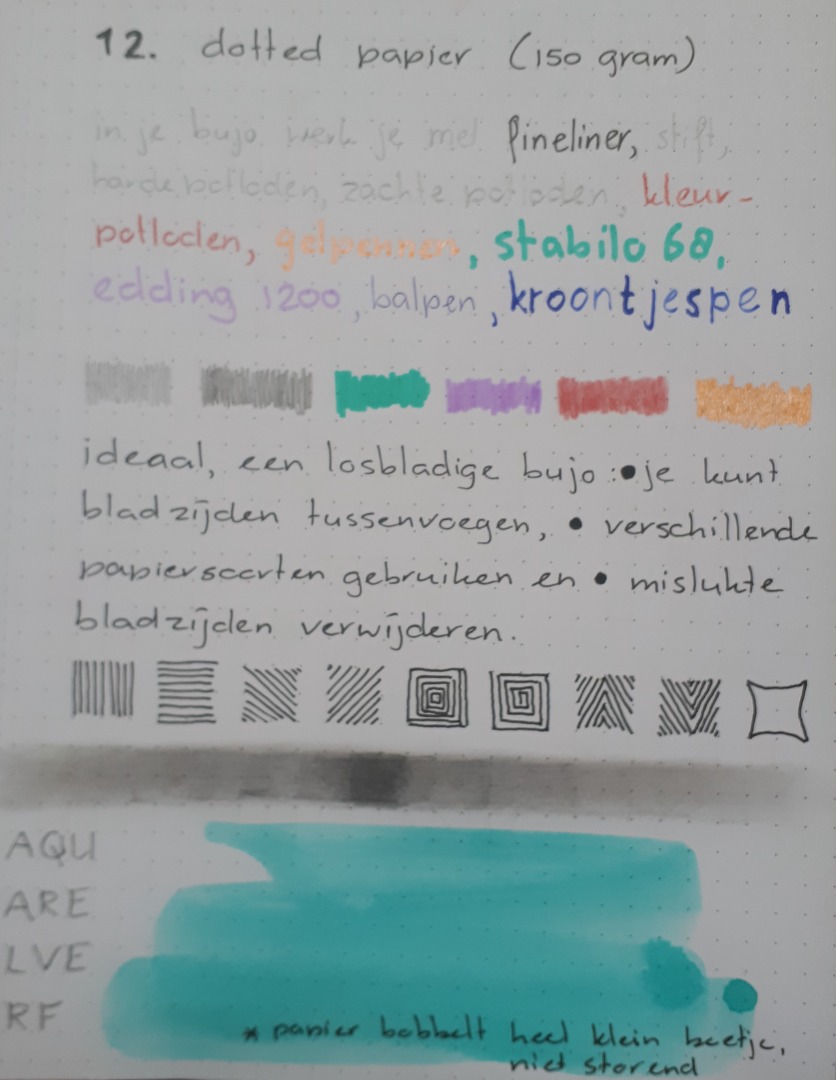 12. dotted papier (150 gram)
in je bujo werk je met fineliner, stift,
harde potloden, zachte potloden, kleur-
potloden, gelpennen, stabilo 68,
edding 1200, balpen, kroontjespen
ideaal, een losbladige bujo: • je kunt
bladzijden tussenvoegen, • verschillende
papiersoorten gebruiken en • mislukte
bladzijden verwijderen.
AQU
ARE
LVE
RF
* papier bobbelt heel klein beetje,
niet storend